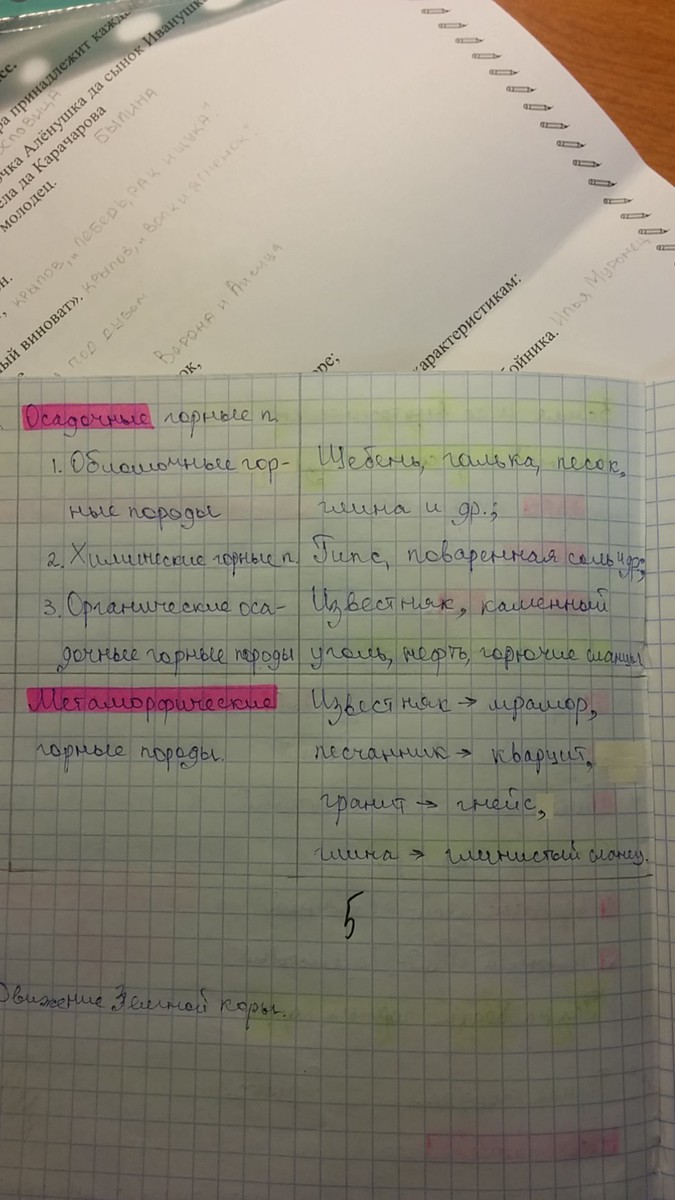 ра принадлежит кажд
очка Алёнушка да сынок Иванушк
БЫЛИНА
ела да Карачарова
молодец.
Крылов, „Лебедь, рак и щука."
ый виноват». Крылов, „
под дубом
Ворона и Лисица
ок,
оре;
характеристикам:
ойника. Илья Муромец
Осадочные горные п.
1. Обломочные гор- Щебень, галька, песок,
ные породы глина и др.;
2. Химические горные п. Гипс, поваренная соль и др;
3. Органические оса- Известняк, каменный
дочные горные породы уголь, нефть, горючие сланцы
Метаморфические Известняк → мрамор,
горные породы. песчанник → кварцит,
гранит → гнейс,
глина → глинистый сланец.
5
Движение Земной коры.